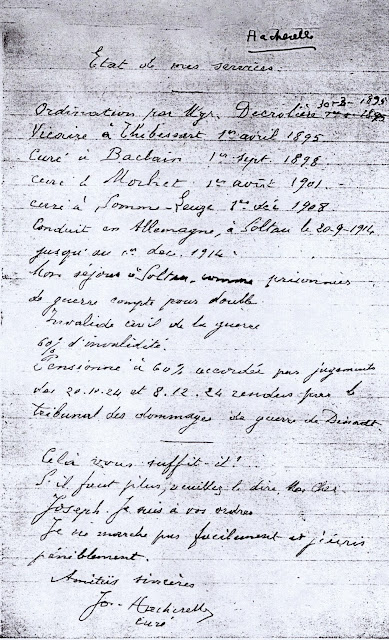 Hacherelle
Etat de mes services
30-3-1895
Ordination par Mgr. Decrolière
Vicaire à Thibessart 1er avril 1895
Curé à Baclain 1er sept. 1898
curé à Morhet 1er août 1901
curé à Somme-Leuze 1er déc 1908
Conduit en Allemagne, à Soltau le 20-9-1914
jusqu'au 1er dec. 1914.
Mon sejour à Soltau, comme prisonnier
de guerre compte pour double
Invalide civil de la guerre
60% d'invalidité.
Pensionné à 60% accordée par jugements
des 20.10.24 et 8.12.24 rendus par le
tribunal des dommages de guerre de Dinant.
Celà vous suffit-il?
S'il faut plus, veuillez le dire Mon cher
Joseph. Je suis à vos ordres
Je ne marche pas facilement et j'écris
péniblement.
Amitiés sincères
Jos. Hacherelle
curé